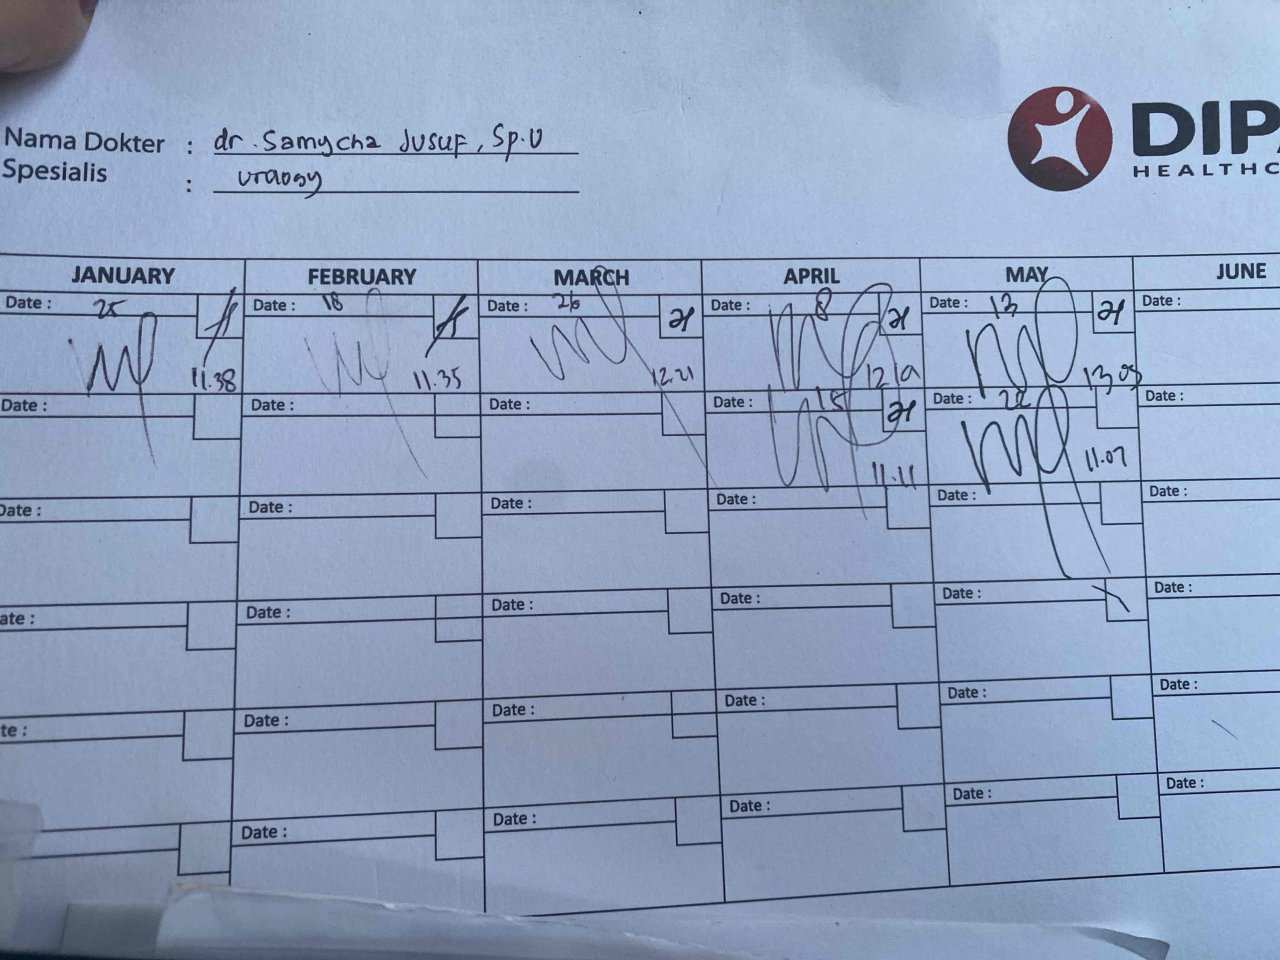 Nama Dokter : dr. Samycha Jusuf, Sp.U
Spesialis : uraogy
DIPA
HEALTHC
JANUARY FEBRUARY MARCH APRIL MAY JUNE
Date : 25 Date : 18 Date : 26 Date : 8 Date : 13 Date :
11.38 11.35 12.21 12 19 13 09
Date : Date : Date : Date : 15 Date : 22 Date :
11.11 11.07
Date : Date : Date : Date : Date : Date :
ate : Date : Date : Date : Date : Date :
te : Date : Date : Date : Date : Date :
Date : Date : Date : Date : Date :